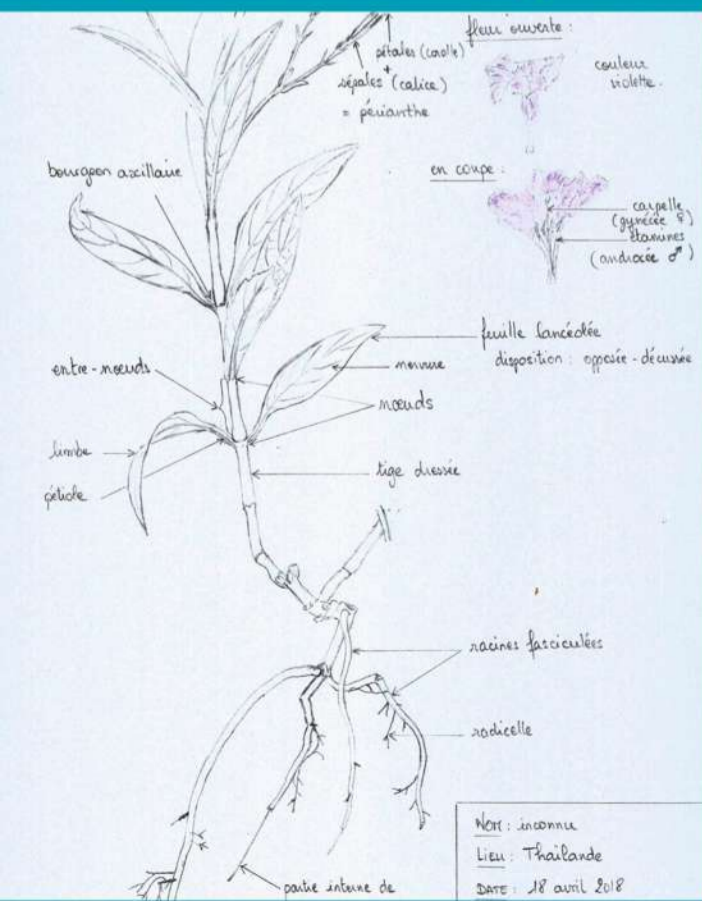 pétales (corolle)
+
sépales (calice)
= périanthe
fleur ouverte :
couleur
violette.
bourgeon axillaire
en coupe :
carpelle
(gynécée ♀)
étamines
(androcée ♂)
feuille lancéolée
disposition : opposée - décussée
entre-nœuds
nervure
nœuds
limbe
pétiole
tige dressée
racines fasciculées
radicelle
partie interne de
NOM : inconnu
LIEU : Thaïlande
DATE : 18 avril 2018